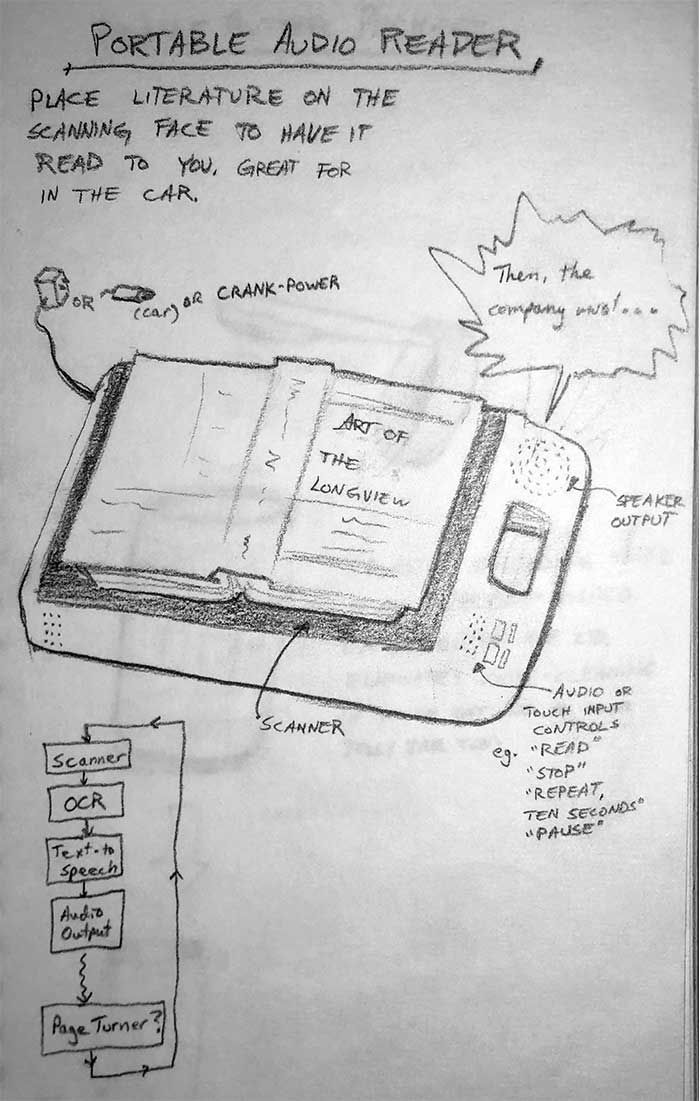 PORTABLE AUDIO READER
PLACE LITERATURE ON THE
SCANNING FACE TO HAVE IT
READ TO YOU. GREAT FOR
IN THE CAR.
OR (car) OR CRANK-POWER
Then, the
company was!...
ART OF
THE
LONGVIEW
SPEAKER
OUTPUT
SCANNER
AUDIO OR
TOUCH INPUT
CONTROLS
eg. "READ"
"STOP"
"REPEAT,
TEN SECONDS"
"PAUSE"
Scanner
OCR
Text-to
Speech
Audio
Output
Page Turner?